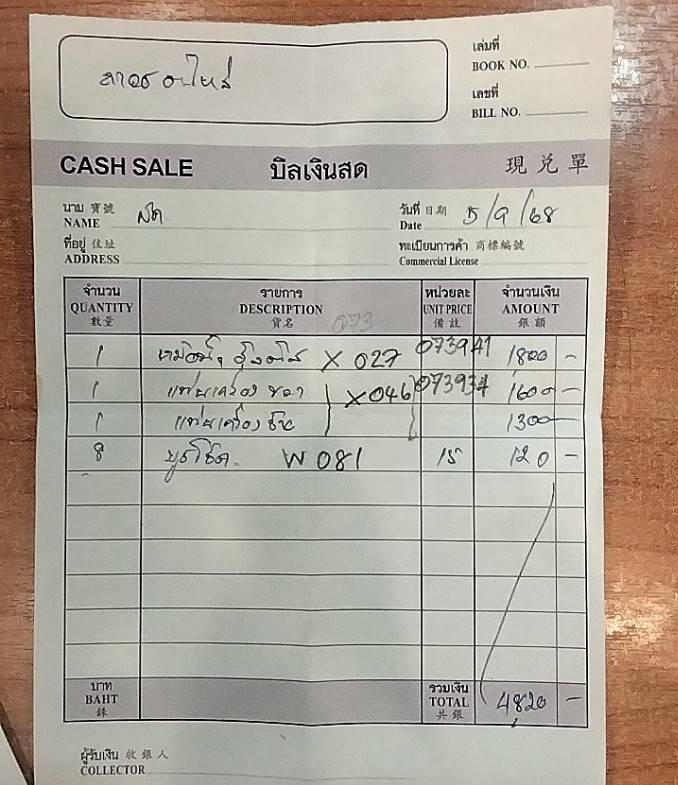 ลาวรอะไหล่
เล่มที่
BOOK NO.
เลขที่
BILL NO.
CASH SALE บิลเงินสด 現兌單
นาม 寶號
NAME สด
วันที่ 日期
Date 5/9/68
ที่อยู่ 住址
ADDRESS
ทะเบียนการค้า 商標編號
Commercial License
จำนวน รายการ หน่วยละ จำนวนเงิน
QUANTITY DESCRIPTION UNIT PRICE AMOUNT
數量 貨名 備註 銀額
073
1 หม้อน้ำ X 027 073941 1800 -
1 แท่นเครื่อง ขวา X046 073934 1600 -
1 แท่นเครื่อง ซ้าย 1300 -
8 บูชโช๊ค W 081 15 120 -
บาท รวมเงิน
BAHT TOTAL 4820 -
銖 共銀
ผู้รับเงิน 收銀人
COLLECTOR